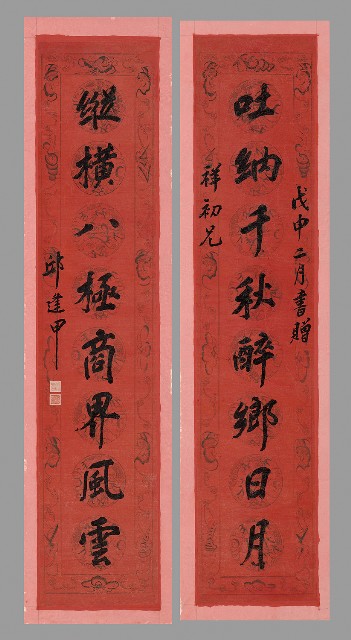 戊申二月書贈
吐納千秋醉鄉日月
祥初兄
縱橫八極商界風雲
邱逢甲